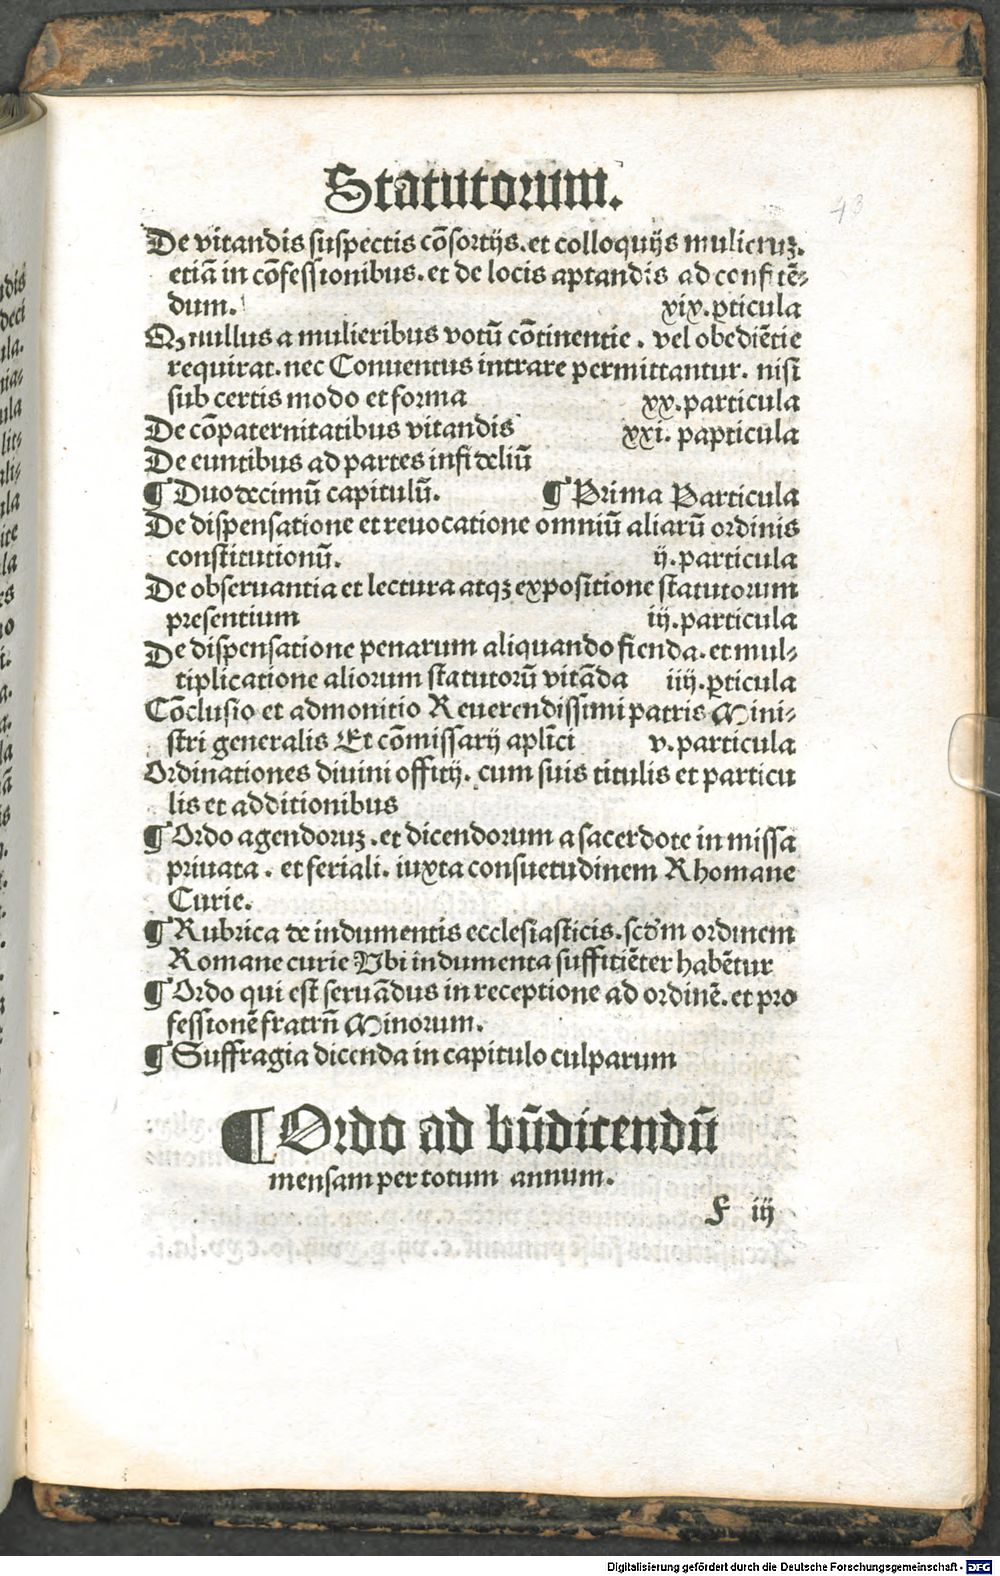 Statutorum.
43
De vitandis suspectis cōsortijs. et colloquijs mulieruꝫ.
etiā in cōfessionibus. et de locis aptandis ad confitē⸗
dum. xix. ꝑticula
Qꝫ nullus a mulieribus votū cōtinentie. vel obediētie
requirat. nec Conuentus intrare permittantur. nisi
sub certis modo et forma xx. particula
De cōpaternitatibus vitandis xxi. papticula
De euntibus ad partes infideliū
¶ Duodecimū capitulū. ¶ Prima Particula
De dispensatione et reuocatione omniū aliarū ordinis
constitutionū. ij. particula
De obseruantia et lectura atqꝫ expositione statutorum
presentium iij. particula
De dispensatione penarum aliquando fienda. et mul⸗
tiplicatione aliorum statutorū vitāda iiij. ꝑticula
Cōclusio et admonitio Reuerendissimi patris Mini⸗
stri generalis Et cōmissarij aplīci v. particula
Ordinationes diuini offitij. cum suis titulis et particu
lis et additionibus
¶ Ordo agendoruꝫ. et dicendorum a sacerdote in missa
priuata. et feriali. iuxta consuetudinem Rhomane
Curie.
¶ Rubrica de indumentis ecclesiasticis. scd'm ordinem
Romane curie Ubi indumenta suffitiēter habētur
¶ Ordo qui est seruādus in receptione ad ordinē. et pro
fessionē fratrū Minorum.
¶ Suffragia dicenda in capitulo culparum
¶ Ordo ad bn̄dicendū
mensam per totum annum.
F iij
Digitalisierung gefördert durch die Deutsche Forschungsgemeinschaft - DFG